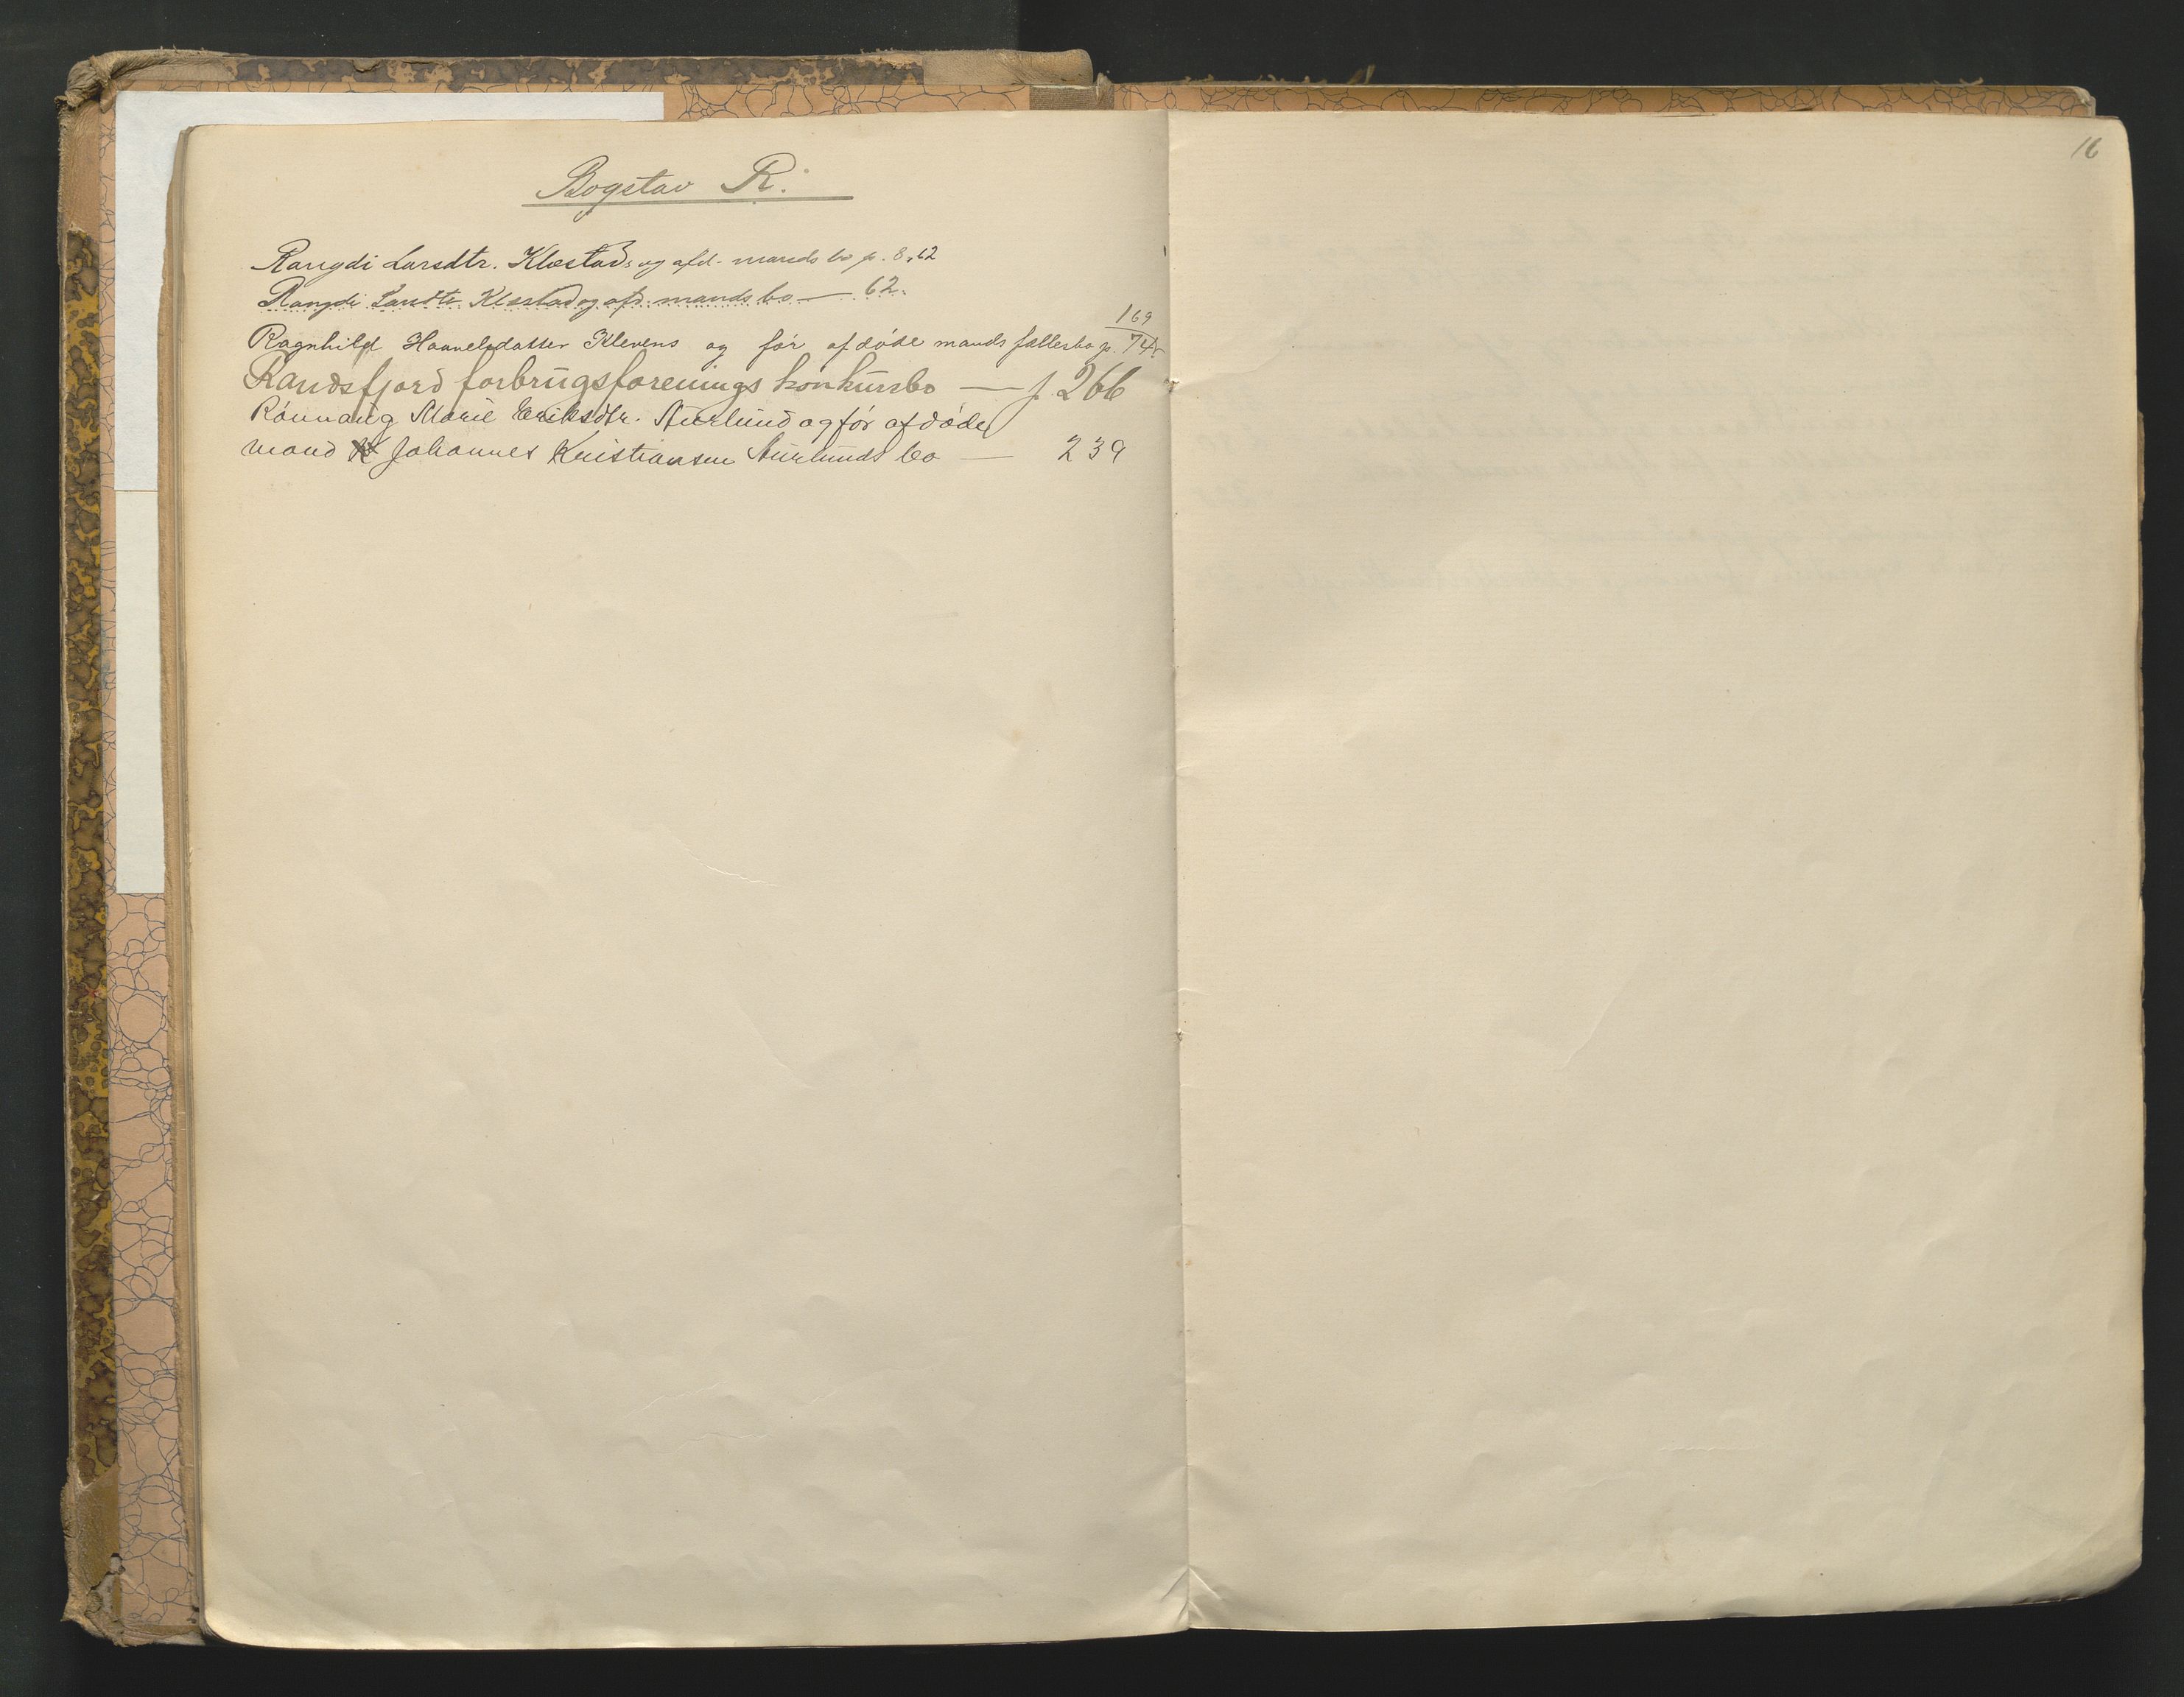 Bogstav R.
16
Rangdi Larsdtr. Klæstads og afd. mands bo p. 8, 62
Rangdi Larsdtr. Klæstad og afd. mands bo — 62.
169
Ragnhild Haavelsdatter Klevens og før afdøde mands fællesbo p. 74
Randsfjord forbrugsforenings konkursbo — p. 266
Rønnaug Marie Eriksdtr. Aurlund og før afdøde
mand Johannes Kristiansen Aurlunds bo — 239